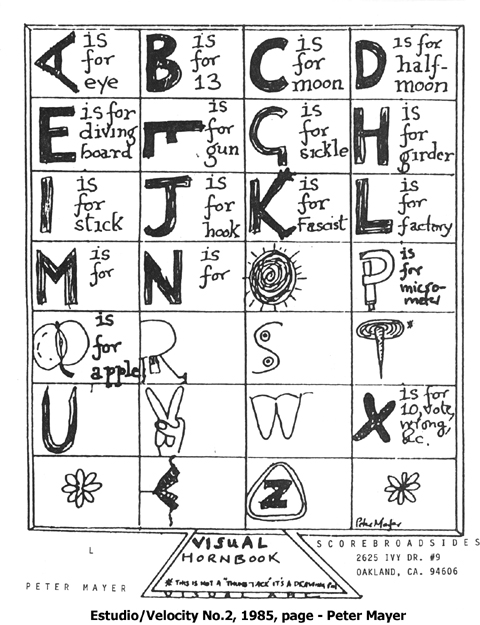 A is for eye
B is for 13
C is for moon
D is for half-moon
E is for diving board
F is for gun
G is for sickle
H is for girder
I is for stick
J is for hook
K is for Fascist
L is for factory
M is for
N is for
O
P is for micro-meter
Q is for apple
R
S
T *
U
V
W
X is for 10, vote, wrong, &c.
Y
Z
Peter Mayer
VISUAL
HORNBOOK
* THIS IS NOT A "THUMB-TACK" IT'S A DRAWING PIN
VISUAL ABC
L
PETER MAYER
SCOREBROADSIDES
2625 IVY DR. #9
OAKLAND, CA. 94606
Estudio/Velocity No.2, 1985, page - Peter Mayer